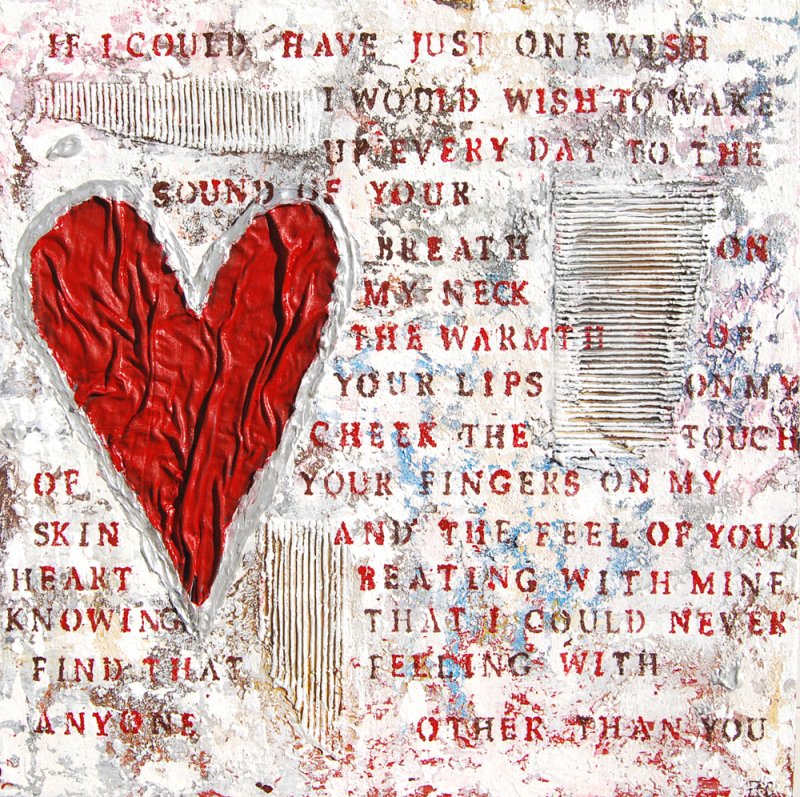 IF I COULD HAVE JUST ONE WISH
I WOULD WISH TO WAKE
UP EVERY DAY TO THE
SOUND OF YOUR
BREATH ON
MY NECK
THE WARMTH OF
YOUR LIPS ON MY
CHEEK THE TOUCH
OF YOUR FINGERS ON MY
SKIN AND THE FEEL OF YOUR
HEART BEATING WITH MINE
KNOWING THAT I COULD NEVER
FIND THAT FEELING WITH
ANYONE OTHER THAN YOU